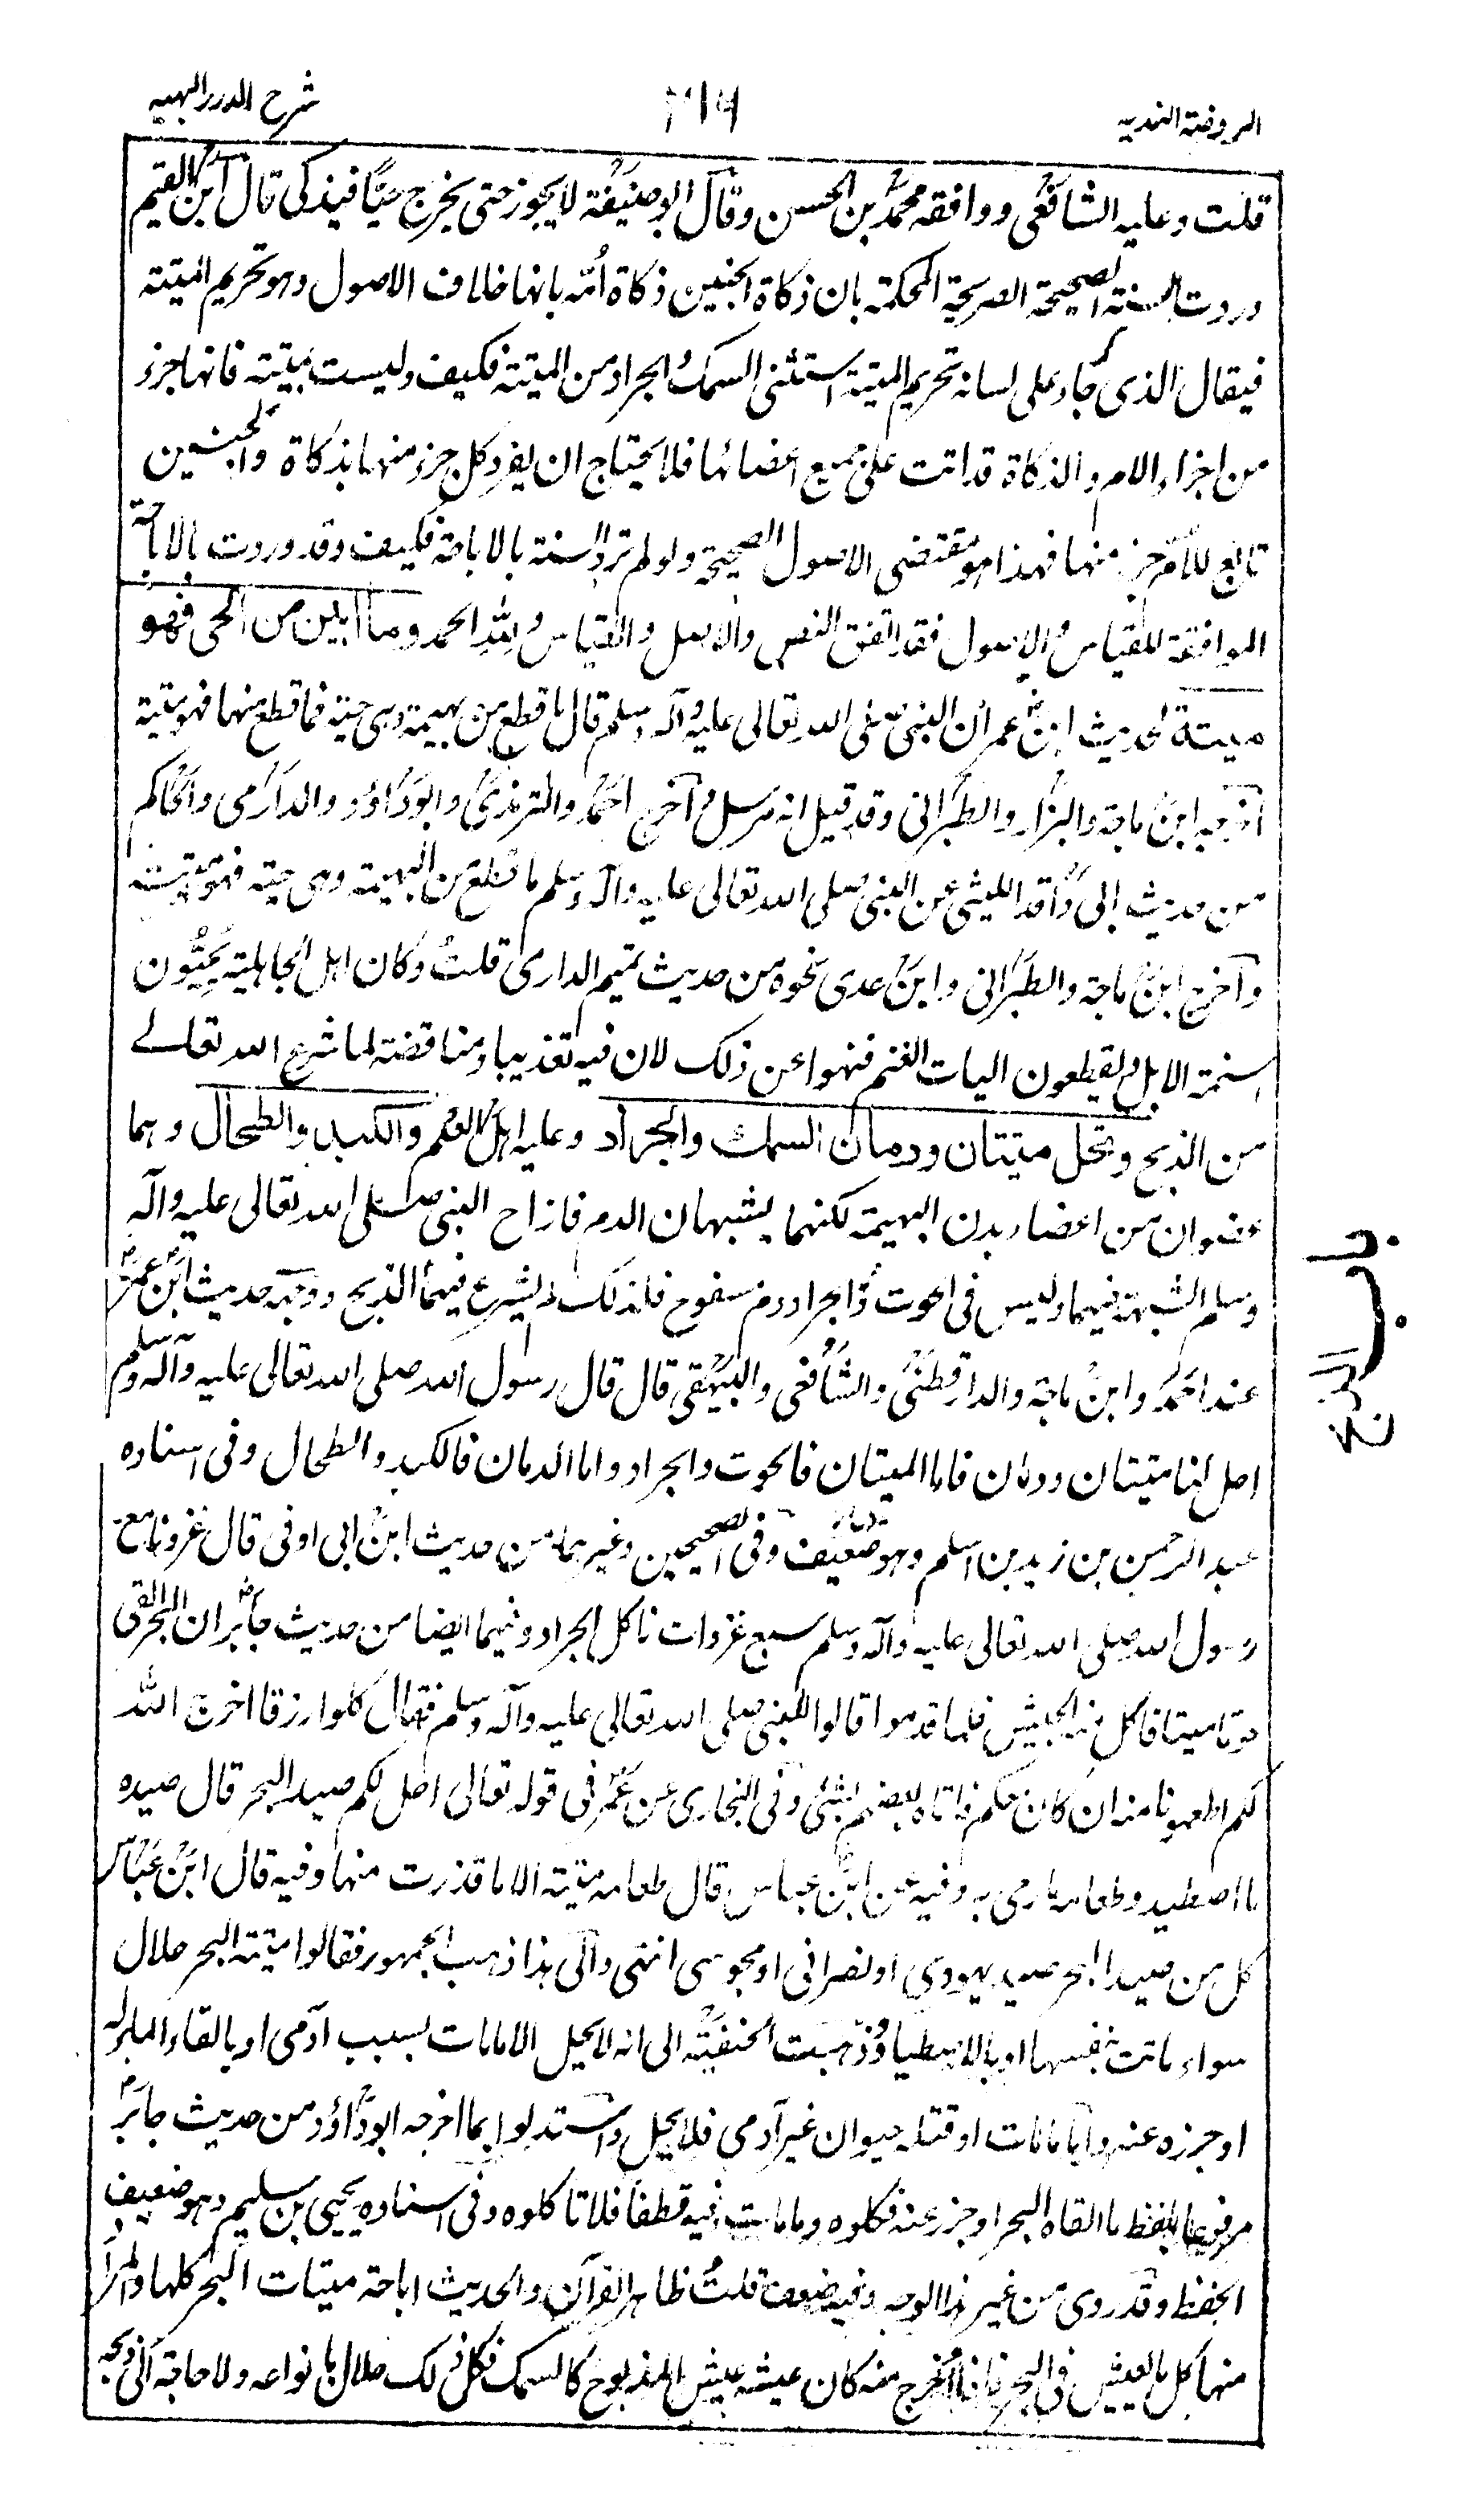 الروضة الندية
٣١٦
شرح الدرر البهية
قلت وعليه الشافعي ووافقه محمد بن الحسن وقال ابو حنيفة لا يجوز حتى يخرج حيا فيذكى قال ابن القيم
وردت السنة الصحيحة الصريحة المحكمة بان ذكاة الجنين ذكاة امه بانها خلاف الاصول وهو تحريم الميتة
فيقال الذي جاء على لسانه تحريم الميتة استثنى السمك والجراد من الميتة فكيف وليست بميتة فانها جزء
من اجزاء الام والذكاة قد اتت على جميع اعضائها فلا يحتاج ان يفرد كل جزء منها بذكاة والجنين
تابع للام جزء منها فهذا هو مقتضى الاصول الصحيحة ولو لم ترد السنة بالاباحة فكيف وقد وردت بالاباحة
الموافقة للقياس والاصول فقد اتفق النص والاصل والقياس ولله الحمد وما ابين من الحي فهو
ميتة لحديث ابن عمر ان النبي صلى الله تعالى عليه وآله وسلم قال ما قطع من بهيمة وهي حية فما قطع منها فهو ميتة
اخرجه ابن ماجة والبزار والطبراني وقد قيل انه مرسل وآخرج احمد والترمذي وابو داؤد والدارمي والحاكم
من حديث ابي واقد الليثي عن النبي صلى الله تعالى عليه وآله وسلم ما قطع من البهيمة وهي حية فهو ميتة
وآخرج ابن ماجة والطبراني وابن عدي نحوه من حديث تميم الداري قلت وكان اهل الجاهلية يجبون
اسنمة الابل ويقطعون اليات الغنم فنهوا عن ذلك لان فيه تعذيبا ومناقضة لما شرع الله تعالى
من الذبح وتحل ميتتان ودمان السمك والجراد وعليه اهل العلم والكبد والطحال وهما
عضوان من اعضاء بدن البهيمة لكنهما يشبهان الدم فازاح النبي صلى الله تعالى عليه وآله
وسلم الشبهة فيهما وليس في الحوت والجراد دم مسفوح فلذلك لم يشرع فيهما الذبح ووجهه حديث ابن عمر
عند احمد وابن ماجة والدارقطني والشافعي والبيهقي قال قال رسول الله صلى الله تعالى عليه وآله وسلم
احل لنا ميتتان ودمان فاما الميتتان فالحوت والجراد واما الدمان فالكبد والطحال وفي اسناده
عبد الرحمن بن زيد بن اسلم وهو ضعيف وفي الصحيحين وغيرهما من حديث ابن ابي اوفى قال غزونا مع
رسول الله صلى الله تعالى عليه وآله وسلم سبع غزوات ناكل الجراد وفيهما ايضا من حديث جابر ان البحر القى
حوتا ميتا فاكل منه الجيش فلما قدموا قالوا للنبي صلى الله تعالى عليه وآله وسلم فقال كلوا رزقا اخرج الله
لكم اطعمونا منه ان كان معكم فاتاه بعضهم بشئ وفي البخاري عن عمر في قوله تعالى احل لكم صيد البحر قال صيده
ما اصطيد وطعامه ما رمى به وفيه عن ابن عباس قال طعامه ميتة الا ما قذرت منها وفيه قال ابن عباس
كل من صيد البحر صيد يهودي او نصراني او مجوسي انتهى والى هذا ذهب الجمهور فقالوا ميتة البحر حلال
سواء ماتت بنفسها او بالاصطياد وذهبت الحنفية الى انه لا يحل الا ما مات بسبب آدمي او بالقاء الماء له
او جزره عنه واما ما مات او قتله حيوان غير آدمي فلا يحل واستدلوا بما اخرجه ابو داؤد من حديث جابر
مرفوعا بلفظ ما القاه البحر او جزر عنه فكلوه وما مات فيه فطفا فلا تاكلوه وفي اسناده يحيى بن سليم وهو ضعيف
الحفظ وقد روي من غير هذا الوجه وفيه ضعف قلت ظاهر القرآن والحديث اباحة ميتات البحر كلها والمراد
منها كل ما يعيش في البحر فاذا اخرج منه كان عيشه عيش المذبوح كالسمك فكل ذلك حلال بانواعه ولا حاجة الى ذبحه
باب الذبح